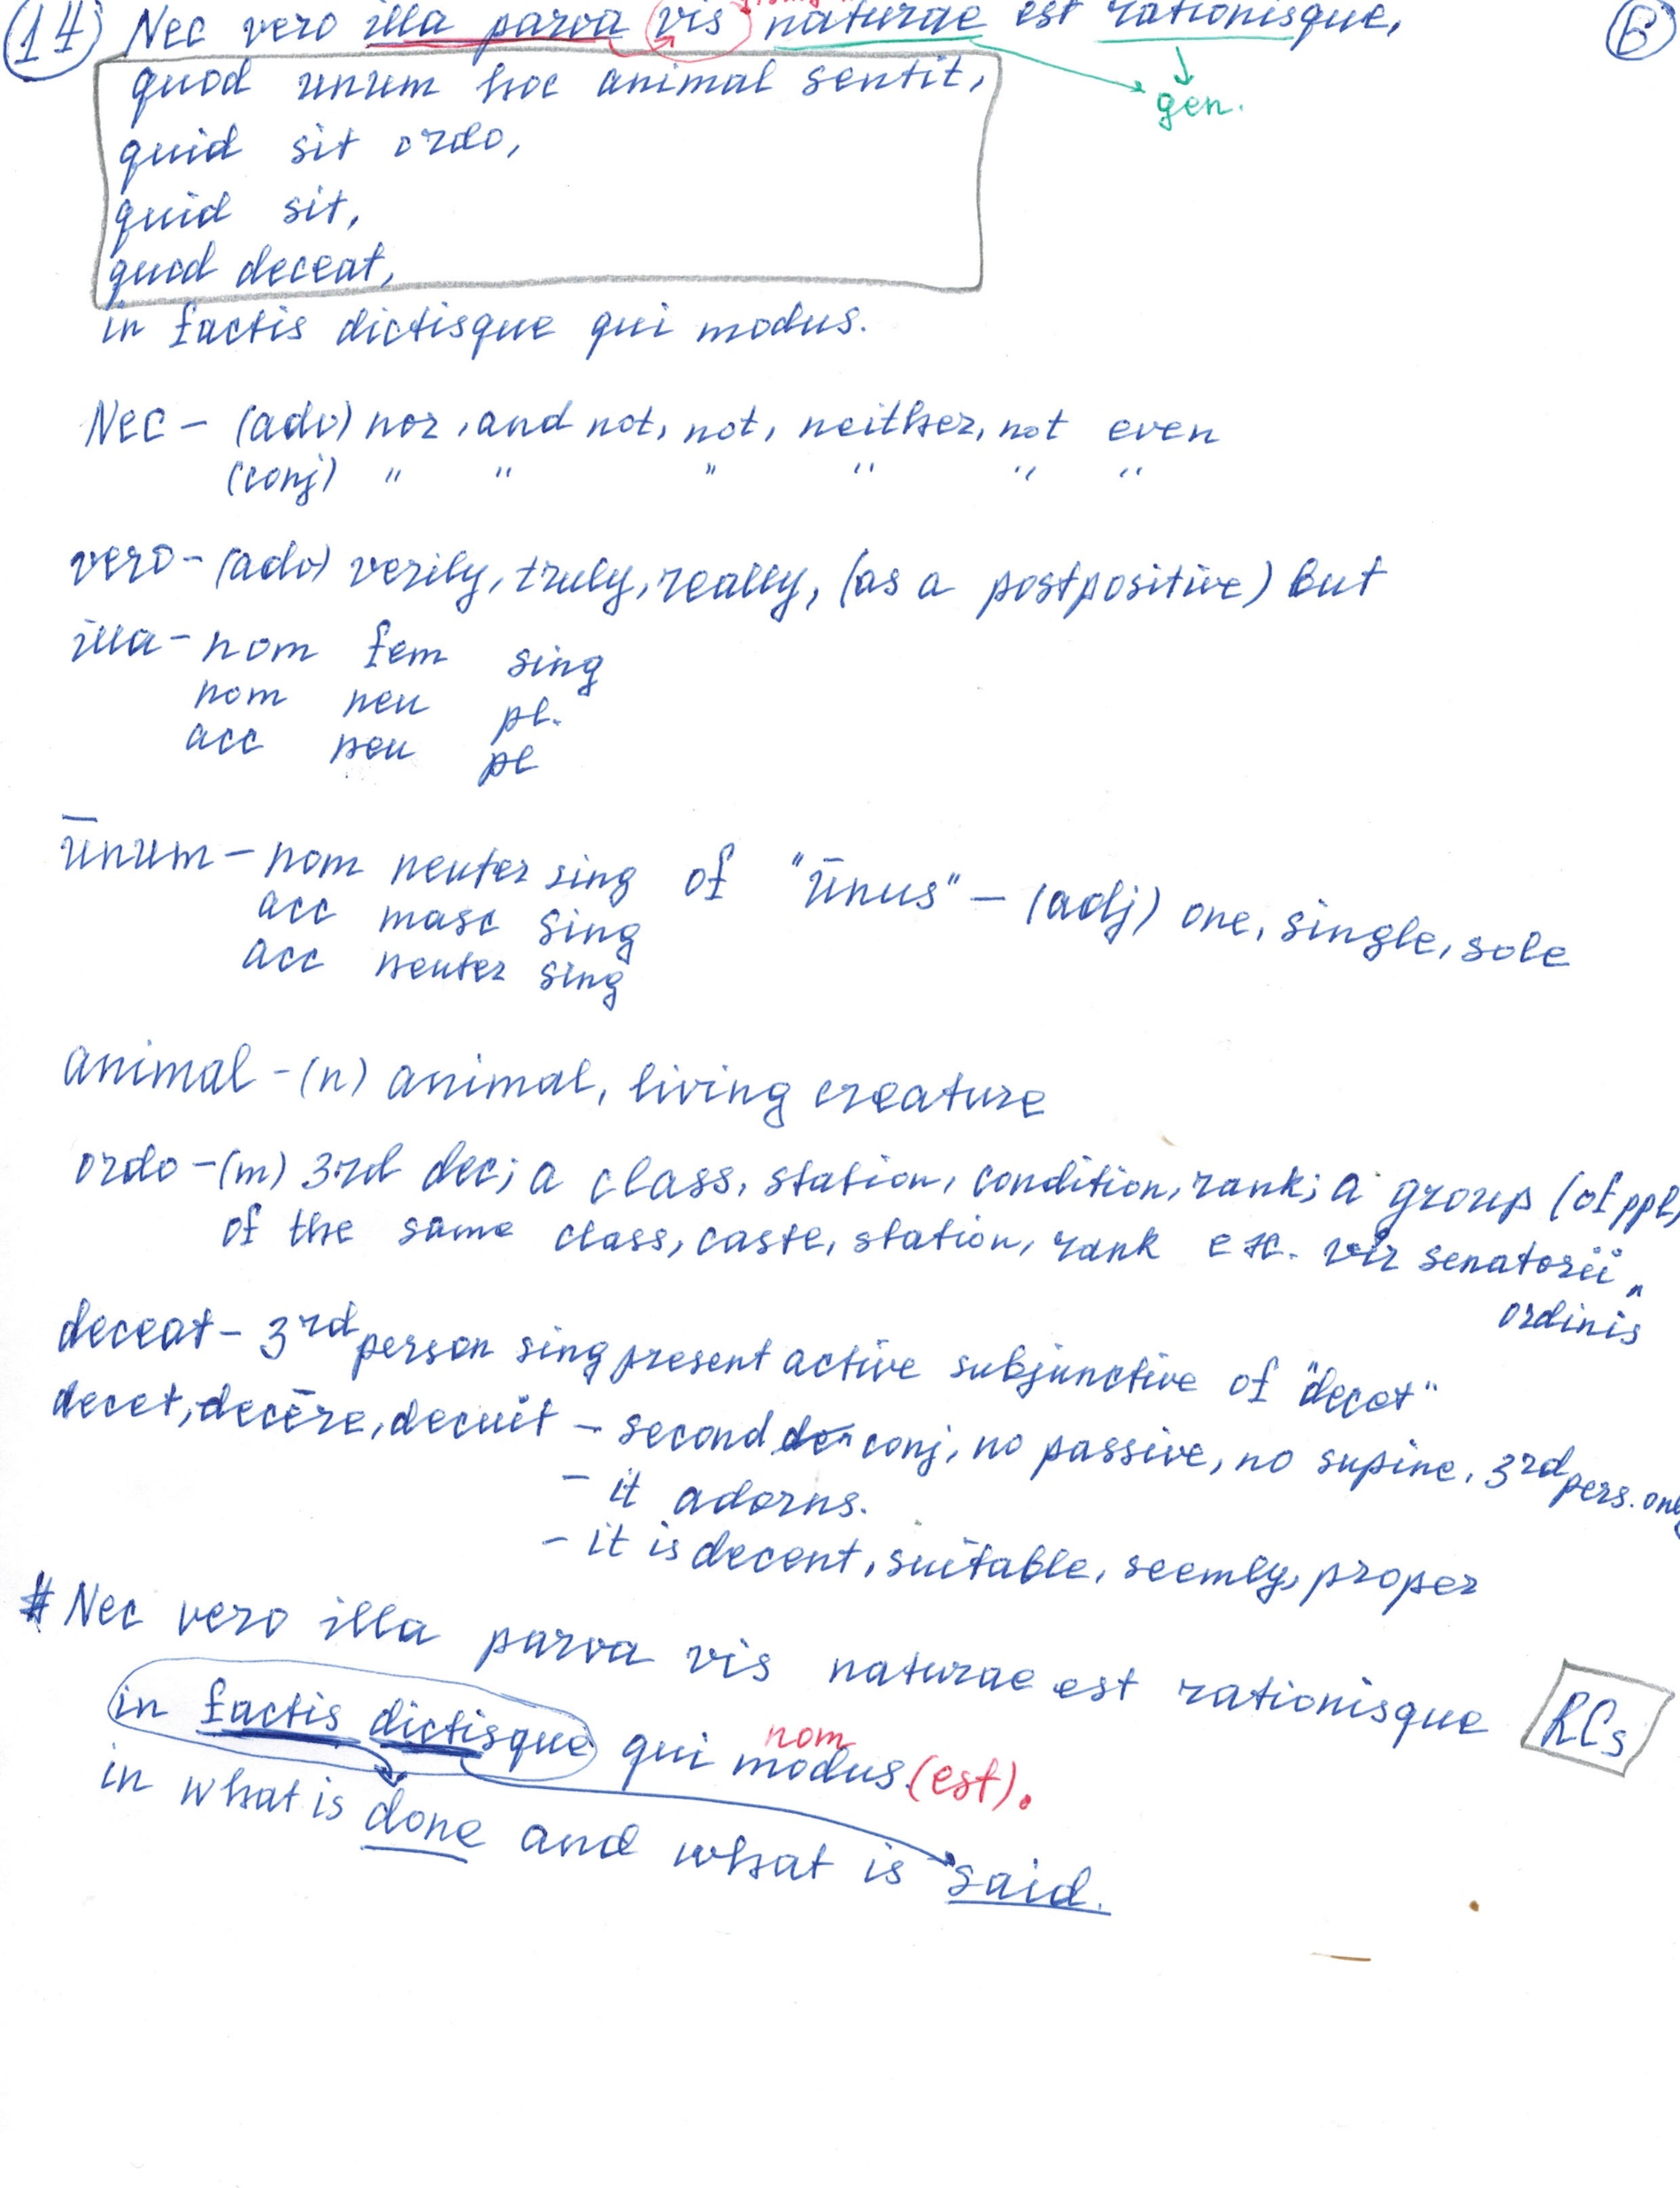 (14) Nec vero illa parva vis naturae est rationisque, 6
quod unum hoc animal sentit,
gen.
quid sit ordo,
quid sit,
quod deceat,
in factis dictisque qui modus.
Nec - (adv) nor, and not, not, neither, not even
(conj) " " " " " "
vero - (adv) verily, truly, really, (as a postpositive) but
illa - nom fem sing
nom neu pl.
acc neu pl
ūnum - nom neuter sing of "ūnus" - (adj) one, single, sole
acc masc sing
acc neuter sing
animal - (n) animal, living creature
ordo - (m) 3rd dec; a class, station, condition, rank; a group (of ppl)
of the same class, caste, station, rank ex. vir senatorii
ordinis
deceat - 3rd person sing present active subjunctive of "decet"
decet, decēre, decuit - second conj, no passive, no supine, 3rd pers. only
- it adorns.
- it is decent, suitable, seemly, proper
# Nec vero illa parva vis naturae est rationisque RCs
in factis dictisque qui modus (est).
nom
in what is done and what is said.